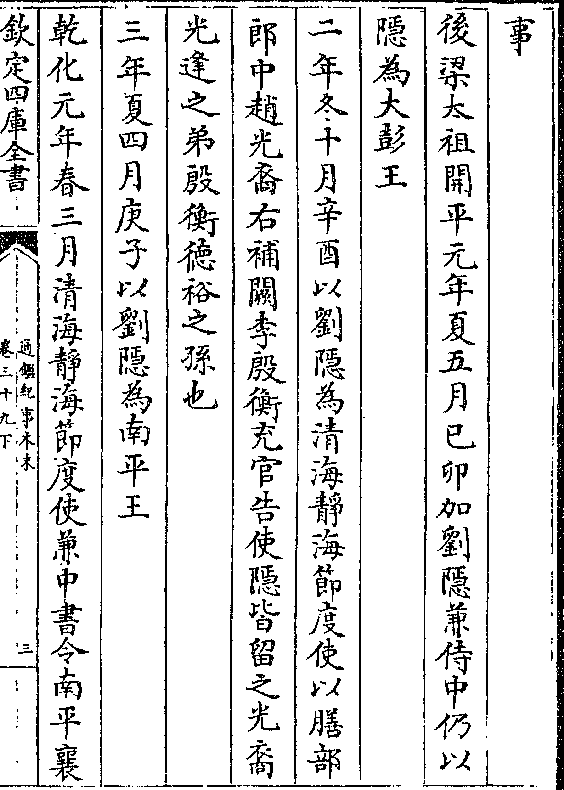 事
後梁太祖開平元年夏五月己卯加劉隱兼侍中仍以
隱為大彭王
二年冬十月辛酉以劉隱為清海靜海節度使以膳部
郎中趙光裔右補闕李殷衡充官告使隱皆留之光裔
光逢之弟殷衡徳裕之孫也
三年夏四月庚子以劉隱為南平王
乾化元年春三月清海靜海節度使兼中書令南平襄
欽定四庫全書
通鑑紀事本末
卷三十九下
三